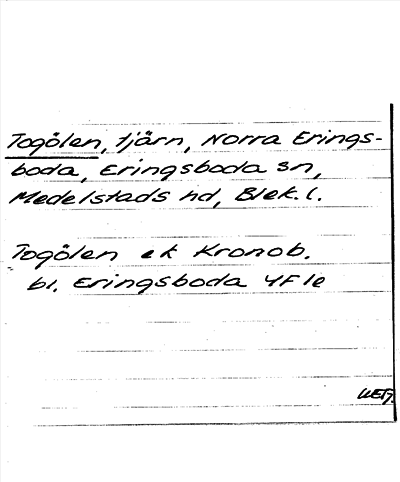 Togölen, tjärn, Norra Erings-
boda, Eringsboda sn,
Medelstads hd, Blek. l.
Togölen ek Kronob.
bl. Eringsboda 4F1e